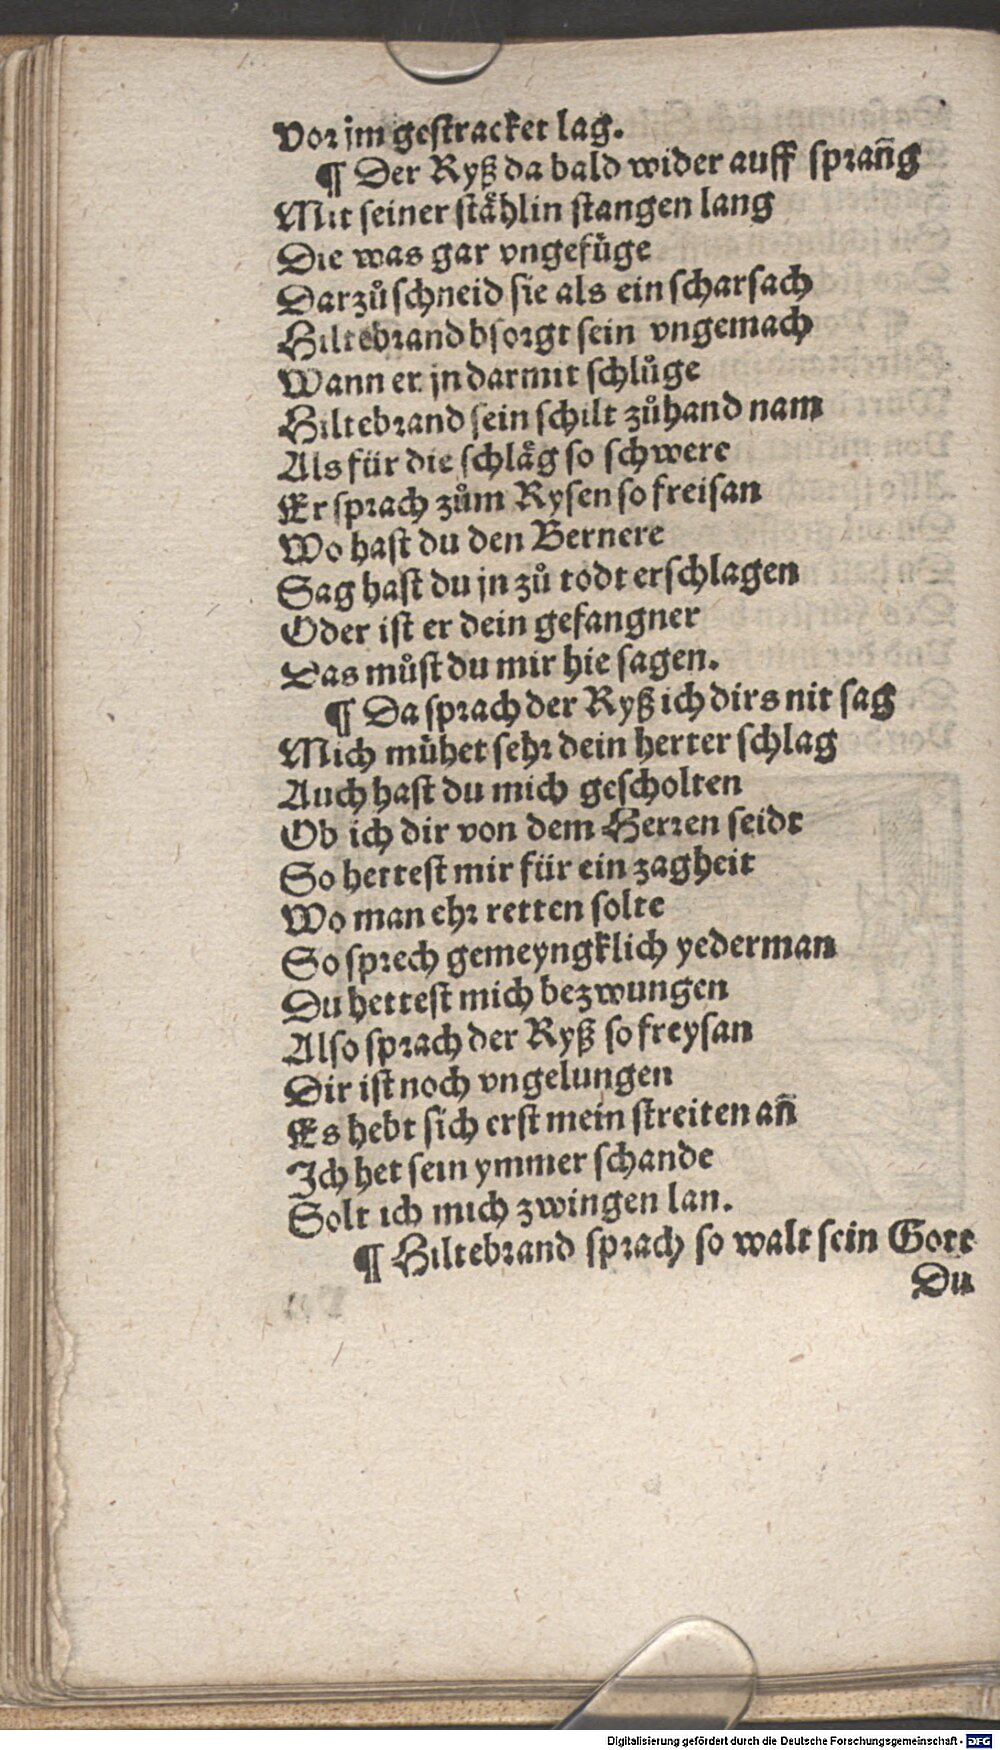 Vor jm gestracket lag.
¶ Der Ryß da bald wider auff sprañg
Mit seiner stählin stangen lang
Die was gar vngefüge
Darzů schneid sie als ein scharsach
Hiltebrand bsorgt sein vngemach
Wann er jn darmit schlůge
Hiltebrand sein schilt zůhand nam
Als für die schläg so schwere
Er sprach zům Rysen so freisan
Wo hast du den Bernere
Sag hast du jn zů todt erschlagen
Oder ist er dein gefangner
Das můst du mir hie sagen.
¶ Da sprach der Ryß ich dirs nit sag
Mich mühet sehr dein herter schlag
Auch hast du mich gescholten
Ob ich dir von dem Herren seidt
So hettest mir für ein zagheit
Wo man ehr retten solte
So sprech gemeyngklich yederman
Du hettest mich bezwungen
Also sprach der Ryß so freysan
Dir ist noch vngelungen
Es hebt sich erst mein streiten añ
Ich het sein ymmer schande
Solt ich mich zwingen lan.
¶ Hiltebrand sprach so walt sein Gott
Du
Digitalisierung gefördert durch die Deutsche Forschungsgemeinschaft - DFG